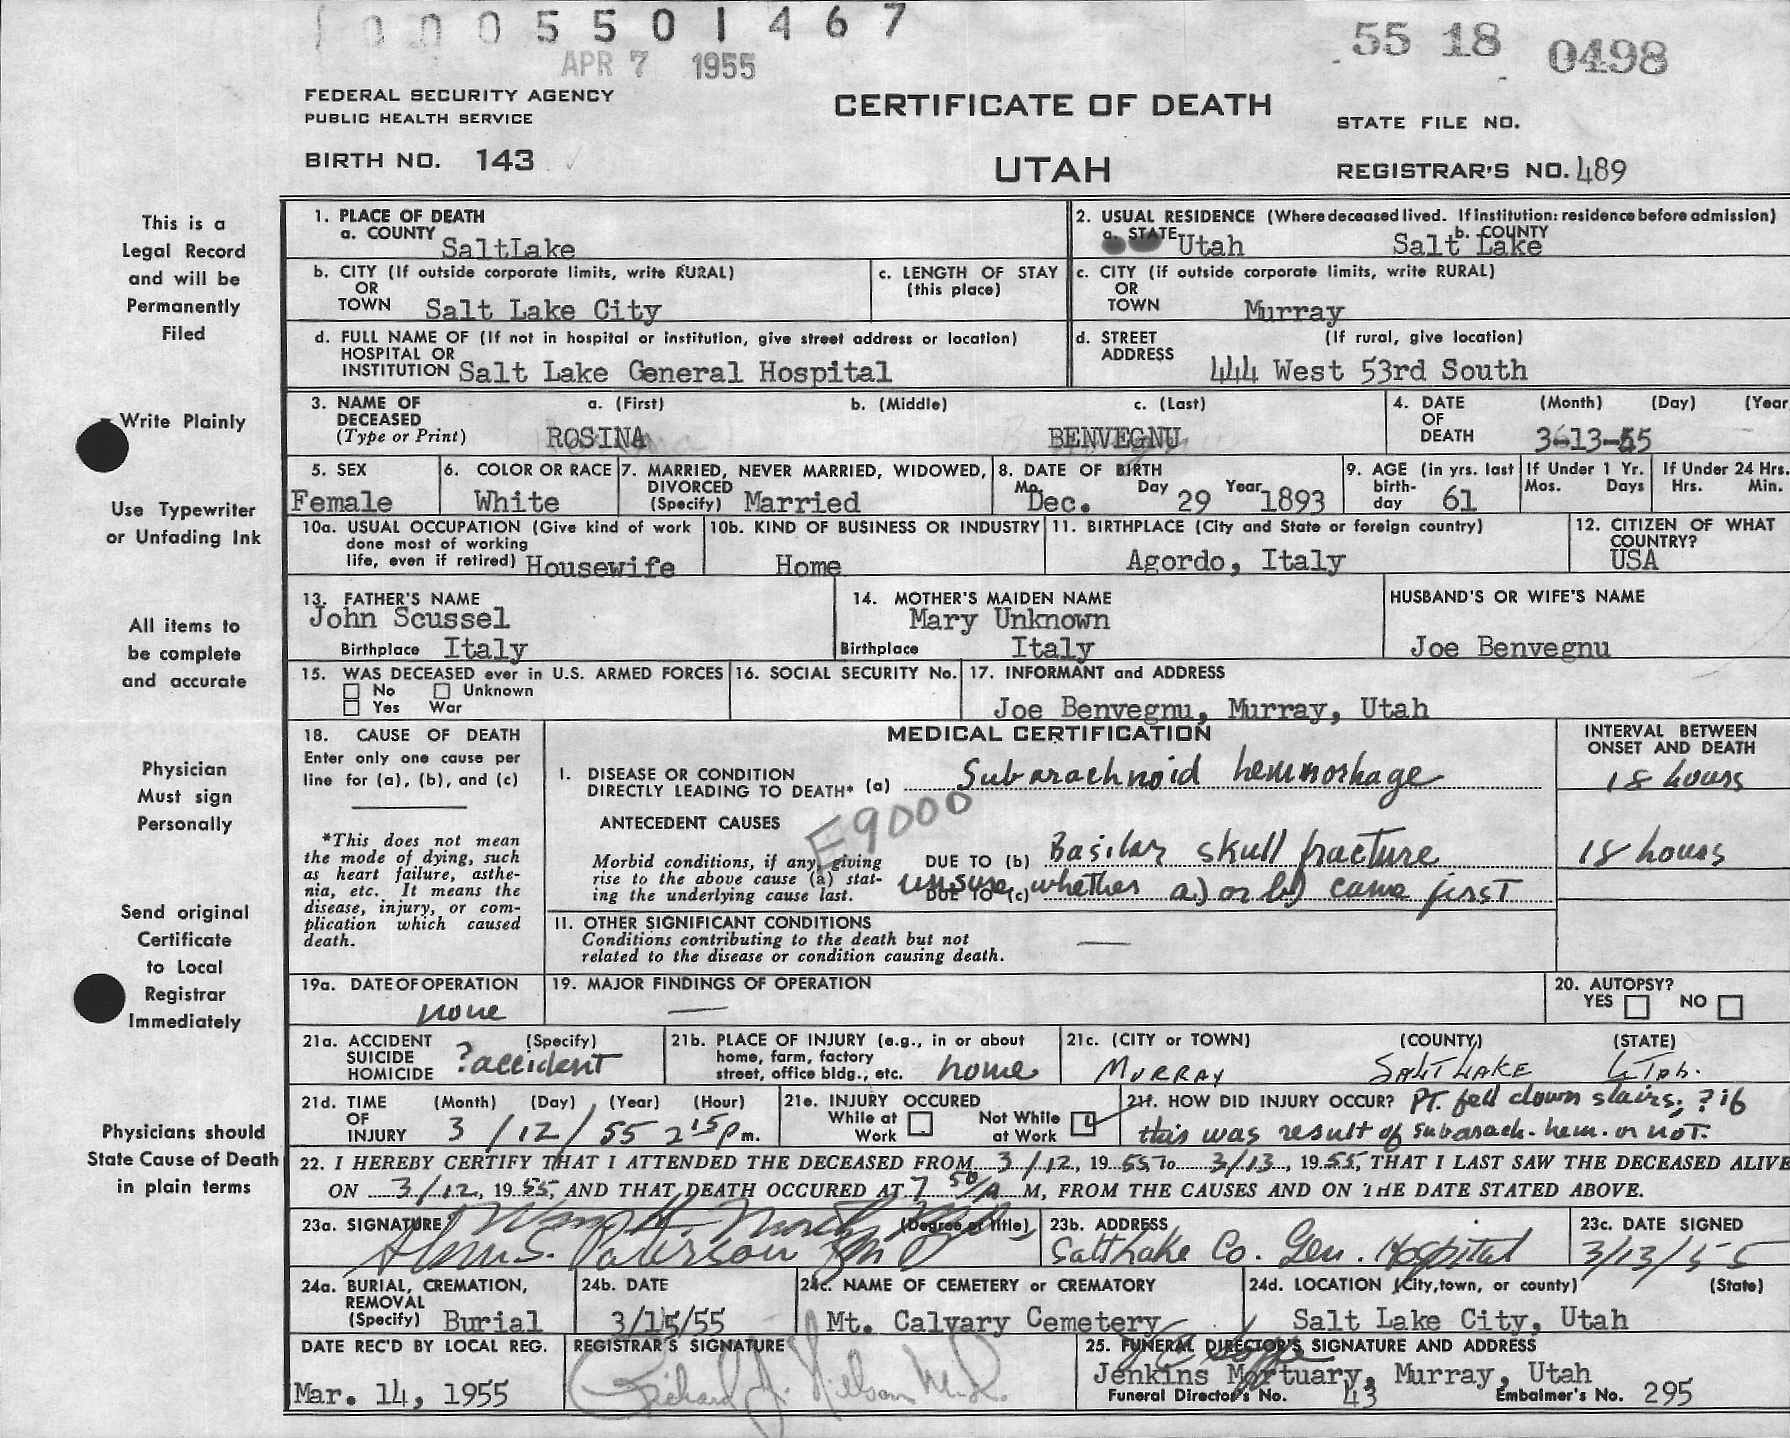 1000 5501467
APR 7 1955
55 18 0498
FEDERAL SECURITY AGENCY
PUBLIC HEALTH SERVICE
BIRTH NO. 143
CERTIFICATE OF DEATH
UTAH
STATE FILE NO.
REGISTRAR'S NO. 489
This is a
Legal Record
and will be
Permanently
Filed
Write Plainly
Use Typewriter
or Unfading Ink
All items to
be complete
and accurate
Physician
Must sign
Personally
Send original
Certificate
to Local
Registrar
Immediately
Physicians should
State Cause of Death
in plain terms
1. PLACE OF DEATH
a. COUNTY SaltLake
2. USUAL RESIDENCE (Where deceased lived. If institution: residence before admission)
a. STATE Utah b. COUNTY Salt Lake
b. CITY (If outside corporate limits, write RURAL)
OR
TOWN Salt Lake City
c. LENGTH OF STAY
(this place)
c. CITY (if outside corporate limits, write RURAL)
OR
TOWN Murray
d. FULL NAME OF (If not in hospital or institution, give street address or location)
HOSPITAL OR
INSTITUTION Salt Lake General Hospital
d. STREET (If rural, give location)
ADDRESS
444 West 53rd South
3. NAME OF DECEASED
(Type or Print)
a. (First) b. (Middle) c. (Last)
ROSINA BENVEGNU
4. DATE OF DEATH (Month) (Day) (Year
3-13-55
5. SEX
Female
6. COLOR OR RACE
White
7. MARRIED, NEVER MARRIED, WIDOWED,
DIVORCED
(Specify) Married
8. DATE OF BIRTH
Mo. Dec. Day 29 Year 1893
9. AGE (in yrs. last
birth-
day 61
If Under 1 Yr.
Mos. Days
If Under 24 Hrs.
Hrs. Min.
10a. USUAL OCCUPATION (Give kind of work
done most of working
life, even if retired) Housewife
10b. KIND OF BUSINESS OR INDUSTRY
Home
11. BIRTHPLACE (City and State or foreign country)
Agordo, Italy
12. CITIZEN OF WHAT
COUNTRY?
USA
13. FATHER'S NAME
John Scussel
Birthplace Italy
14. MOTHER'S MAIDEN NAME
Mary Unknown
Birthplace Italy
HUSBAND'S OR WIFE'S NAME
Joe Benvegnu
15. WAS DECEASED ever in U.S. ARMED FORCES
No Unknown
Yes War
16. SOCIAL SECURITY No.
17. INFORMANT and ADDRESS
Joe Benvegnu, Murray, Utah
18. CAUSE OF DEATH
Enter only one cause per
line for (a), (b), and (c)
*This does not mean
the mode of dying, such
as heart failure, asthe-
nia, etc. It means the
disease, injury, or com-
plication which caused
death.
MEDICAL CERTIFICATION
INTERVAL BETWEEN
ONSET AND DEATH
I. DISEASE OR CONDITION
DIRECTLY LEADING TO DEATH* (a) Subarachnoid hemmorhage 18 hours
E9000
ANTECEDENT CAUSES
Morbid conditions, if any, giving
rise to the above cause (a) stat-
ing the underlying cause last.
DUE TO (b) Basilar skull fracture 18 hours
DUE TO (c) unsure whether a) or b) came first
II. OTHER SIGNIFICANT CONDITIONS
Conditions contributing to the death but not
related to the disease or condition causing death.
19a. DATE OF OPERATION
none
19. MAJOR FINDINGS OF OPERATION
20. AUTOPSY?
YES NO
21a. ACCIDENT (Specify)
SUICIDE
HOMICIDE ?accident
21b. PLACE OF INJURY (e.g., in or about
home, farm, factory
street, office bldg., etc. home
21c. (CITY or TOWN) (COUNTY) (STATE)
MURRAY SALT LAKE UTAH.
21d. TIME (Month) (Day) (Year) (Hour)
OF
INJURY 3/12/55 2 15 Pm.
21e. INJURY OCCURED
While at Work Not While at Work
21f. HOW DID INJURY OCCUR? PT. fell down stairs; ? if
this was result of subarach. hem. or not.
22. I HEREBY CERTIFY THAT I ATTENDED THE DECEASED FROM 3/12, 1955 TO 3/13, 1955, THAT I LAST SAW THE DECEASED ALIVE
ON 3/12, 1955, AND THAT DEATH OCCURED AT 7 50/A M, FROM THE CAUSES AND ON THE DATE STATED ABOVE.
23a. SIGNATURE (Degree or title)
23b. ADDRESS
Salt Lake Co. Gen. Hospital
23c. DATE SIGNED
3/13/55
24a. BURIAL, CREMATION,
REMOVAL
(Specify) Burial
24b. DATE
3/15/55
24c. NAME OF CEMETERY or CREMATORY
Mt. Calvary Cemetery
24d. LOCATION (City, town, or county) (State)
Salt Lake City, Utah
DATE REC'D BY LOCAL REG.
Mar. 14, 1955
REGISTRAR'S SIGNATURE
Richard J. Nielson M.D.
25. FUNERAL DIRECTOR'S SIGNATURE AND ADDRESS
Jenkins Mortuary, Murray, Utah
Funeral Director's No. 43 Embalmer's No. 295